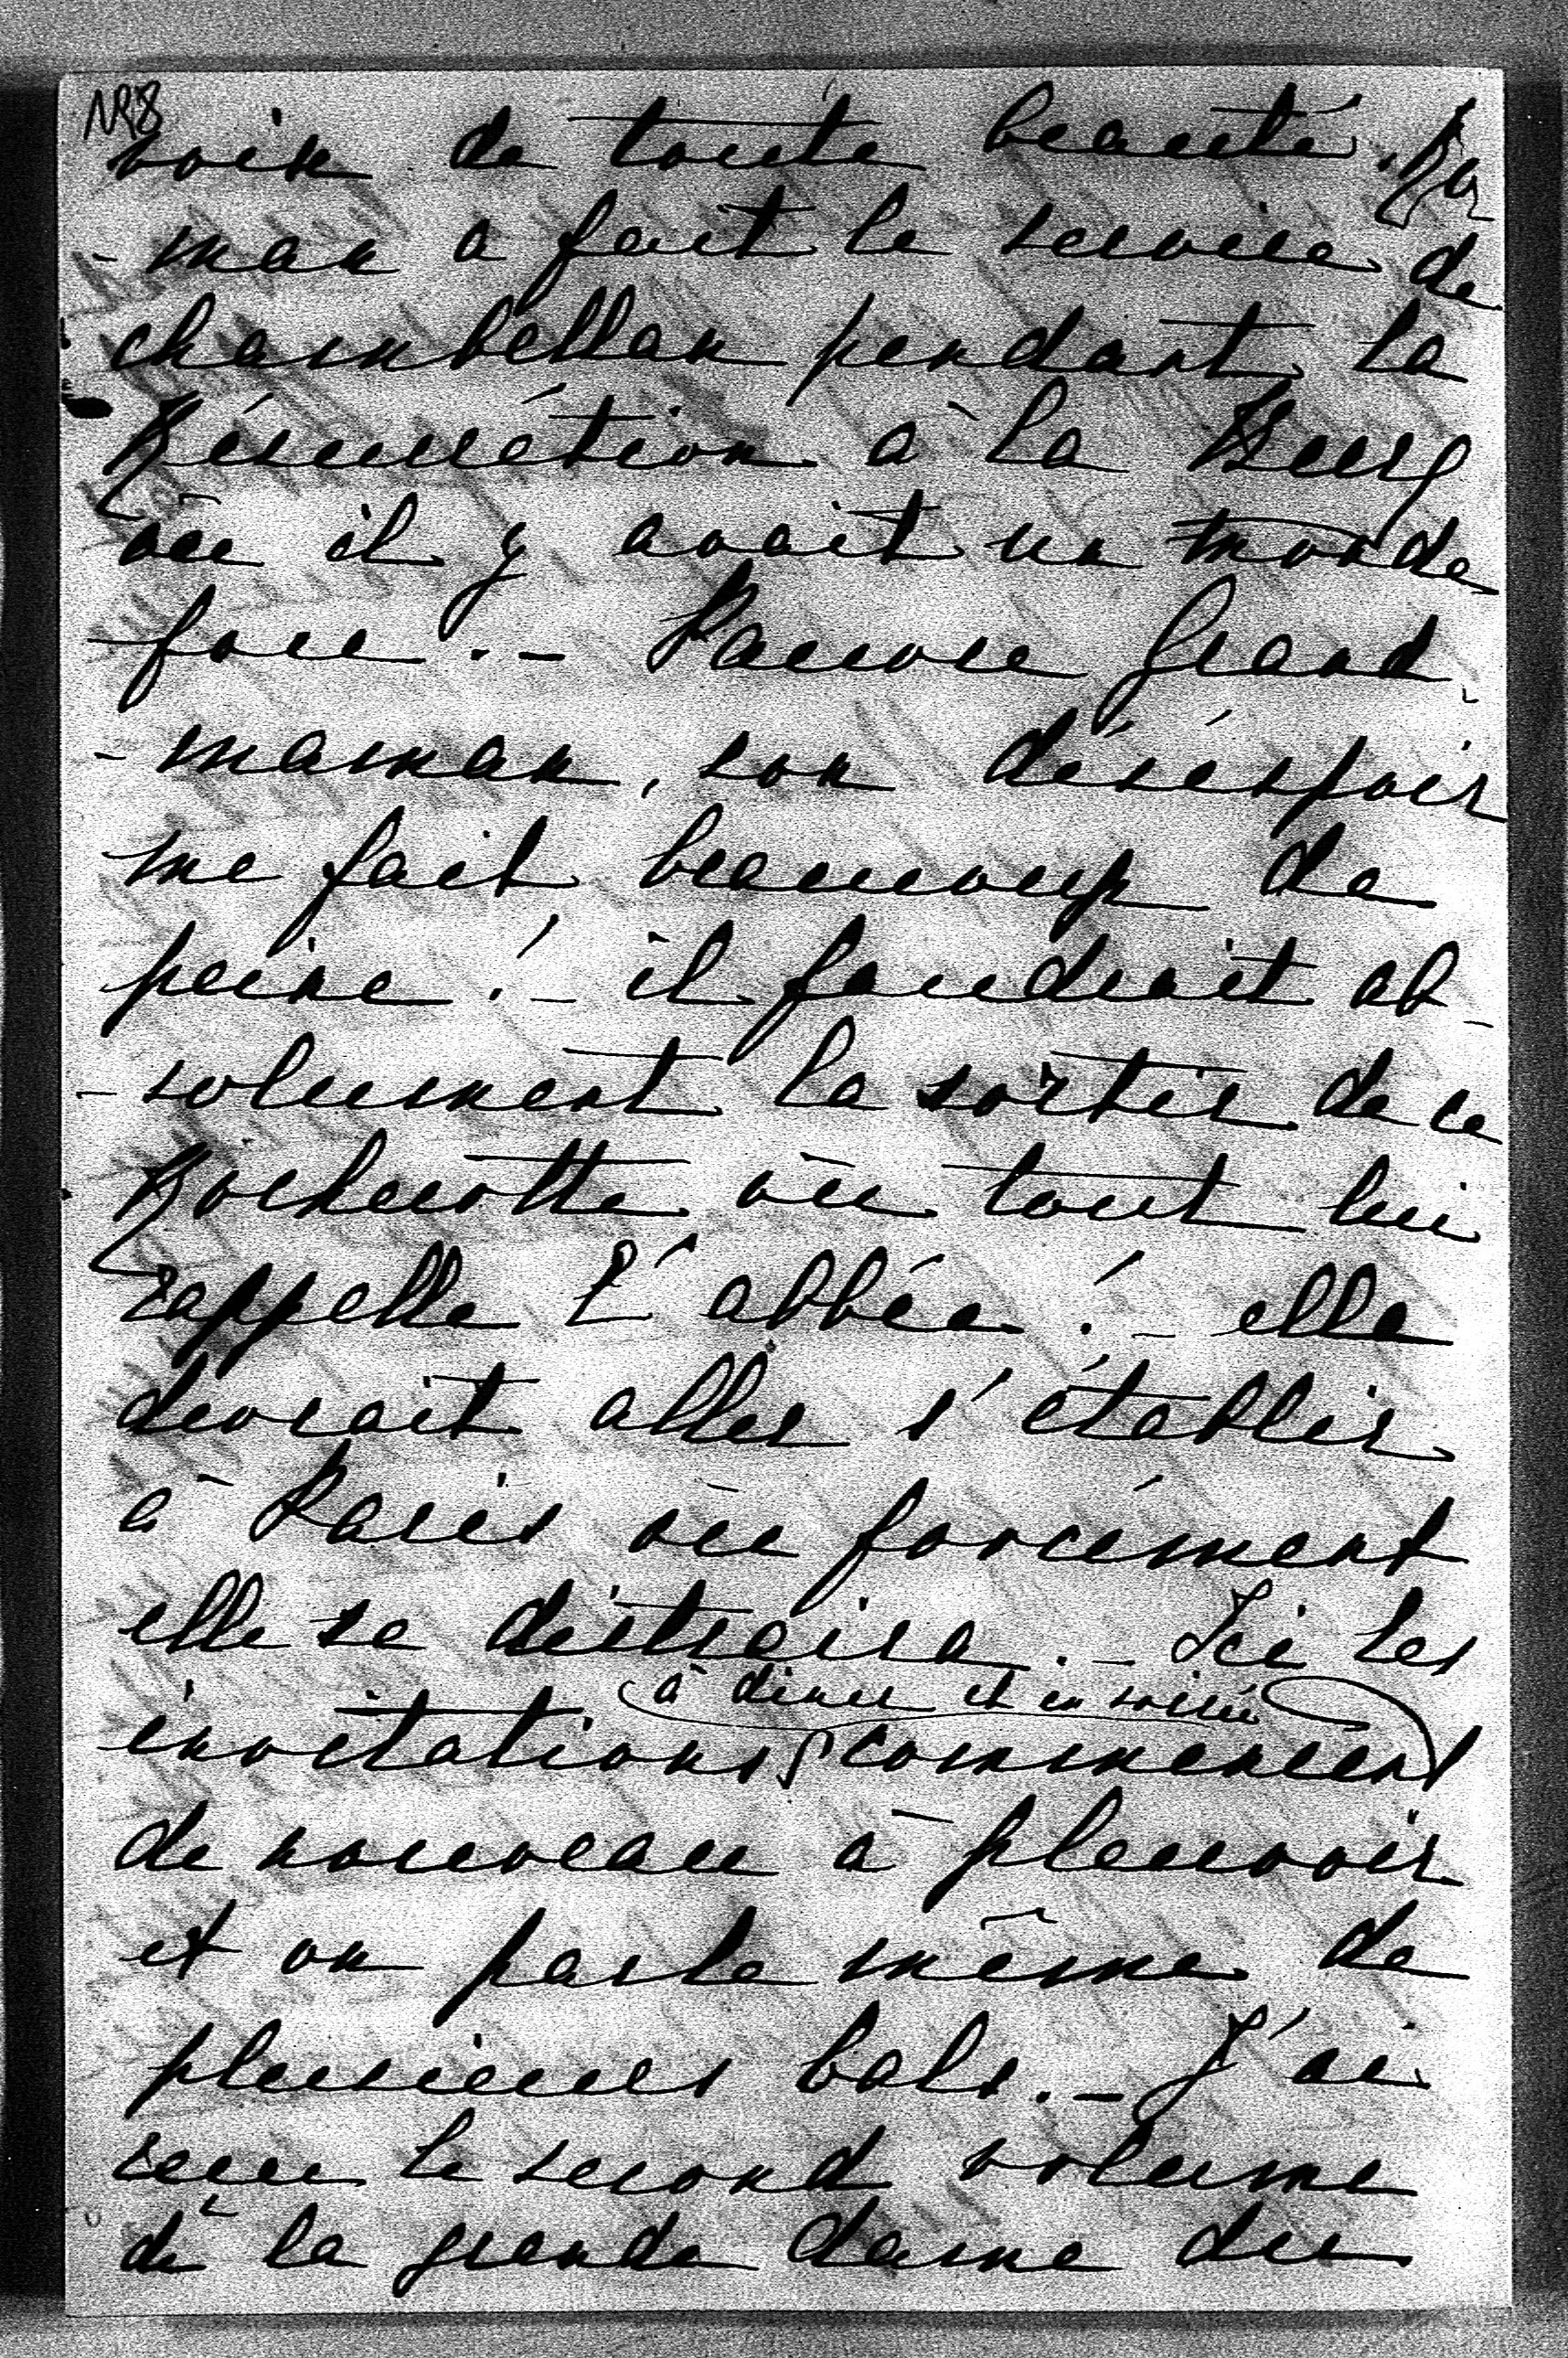 №8
voix de toute beauté. Ro
- man a fait le service de
chambellan pendant la
Résurrétion à la Burg
où il y avait un monde
fou. - Pauvre Grand
- maman, son désespoir
me fait beaucoup de
peine! - il faudrait ab
- solument la sortir de ce
Rochecotte où tout lui
rappelle l'abbée! - elle
devrait aller s'établir
à Paris où forcément
elle se distraira. - Ici les
à diner et en soirée
invitations commencent
de nouveau à pleuvoir
et on parle même de
plusieurs bals. - J'ai
reçu le second volume
de la grande dame du